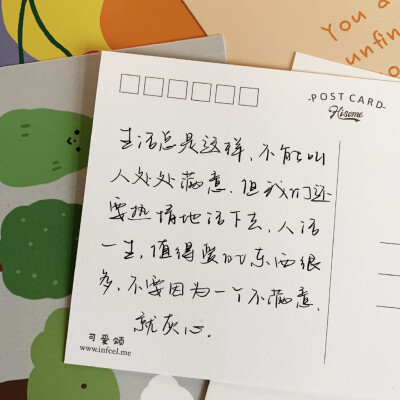 You a
unfin
POST CARD
Kisome
生活总是这样,不能叫
人处处满意.但我们还
要热情地活下去,人活
一生,值得爱的东西很
多,不要因为一个不满意,
就灰心.
可爱颂
www.infeel.me